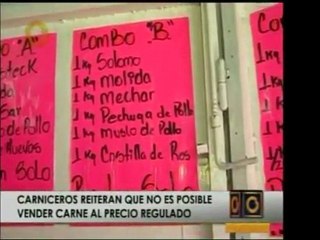 "A"
steck
de Pollo
Huevos
Solo
Combo "B"
1 Kg Solomo
1 Kg Molida
1 Kg Mechar
1 Kg Pechuga de Pollo
1 Kg Muslo de Pollo
1 Kg Costilla de Res
Solo
CARNICEROS REITERAN QUE NO ES POSIBLE
VENDER CARNE AL PRECIO REGULADO